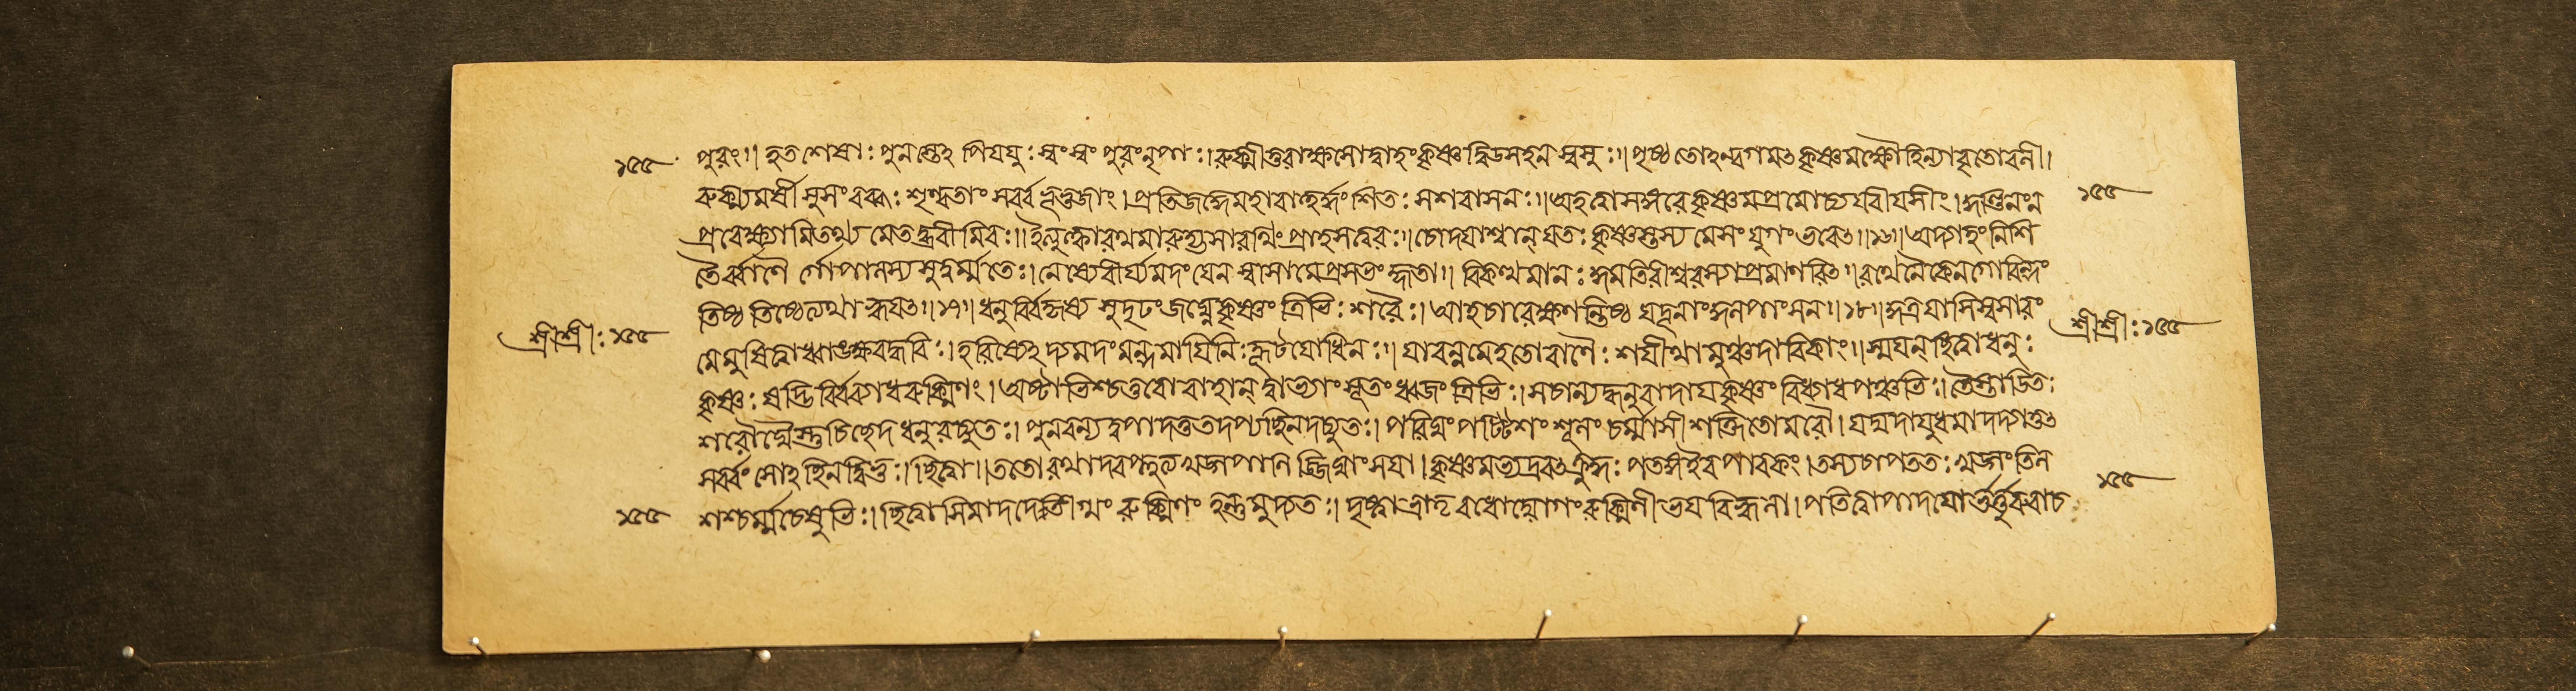 ১৫৫ পুরং৷৷ হত শেষাঃ পুনস্তেঽপি যযুঃ স্বং স্বং পুরং নৃপাঃ৷ রুক্মী তু রাক্ষসোদ্বাহং কৃষ্ণদ্বিডসহন স্বসুঃ৷৷ পৃষ্ঠতোঽন্বগমৎ কৃষ্ণমক্ষৌহিন্যাবৃতোবলী৷
ৰুক্ম্যমর্ষী সুসংৰব্ধঃ শৃণ্বতাং সৰ্ব্বভূভুজাং৷ প্রতিজজ্ঞে মহাবাহুর্দ্দংশিতঃ সশৰাসনঃ৷৷ অহত্বা সমরে কৃষ্ণমপ্রমোচ্য যবীযসীং৷ কুণ্ডিনং ন ১৫৫
প্রবেক্ষ্যামি সত্যমেতদ্ব্রবীমি বঃ৷৷ ইত্যুক্ত্বা রথমারুহ্য সারথিং প্রাহ সত্বরঃ৷৷ চোদযাশ্বান্ যতঃ কৃষ্ণস্তস্য মে সংযুগং ভবেৎ৷৷১৬৷৷ অদ্যাহং নিশি
তৈর্ব্বাণৈ র্গোপালস্য সুদুর্ম্মতেঃ৷ নেষ্যে বীর্য্যমদং যেন স্বসা মে প্রসভং হৃতা৷৷ বিকত্থমানঃ কুমতিরীশ্বরস্যাপ্রমাণবিৎ৷ রথেনৈকেন গোবিন্দং
তিষ্ঠ তিষ্ঠেত্যথাহ্বযৎ৷৷১৭৷৷ ধনুর্বিকৃষ্য সুদৃঢং জঘ্নে কৃষ্ণং ত্রিভিঃ শরৈঃ৷ আহ চারে ক্ষণন্তিষ্ঠ যদূনাং কুলপাংসন৷৷১৮৷৷ কুত্র যাসি স্বসারং
শ্রীশ্রীঃ ১৫৫ মে মুষিত্বা ধ্বাঙ্ক্ষবদ্ধবিঃ৷ হরিষ্যেঽদ্য মদং মন্দ মাযিনঃ কূটযোধিনঃ৷৷ যাবন্ন মে হতো বাণৈঃ শযীথা মুঞ্চ দাৰিকাং৷৷ স্ময়ন্ ছিত্বা ধনুঃ শ্রীশ্রীঃ ১৫৫
কৃষ্ণঃ ষড্ভির্বিব্যাধ ৰুক্মিণং৷ অষ্টাভিশ্চতুৰো বাহান্ দ্বাভ্যাং সূতং ধ্বজং ত্রিভিঃ৷ স চান্যদ্ধনুৰাদায কৃষ্ণং বিব্যাধ পঞ্চভিঃ৷ তৈস্তাডিতঃ
শরৌঘৈস্তু চিচ্ছেদ ধনুরচ্যুতঃ৷ পুনৰন্যদুপাদত্ত তদপ্যচ্ছিনদচ্যুতঃ৷ পরিঘং পট্টিশং শূলং চর্ম্মাসী শক্তিতোমরৌ৷ যদ্যদাযুধমাদদ্যাত্তৎ
সৰ্ব্বং সোঽচ্ছিনদ্বিভুঃ৷ ছিত্বা৷ ততো রথাদবপ্লুত্য খড্গপাণি র্জ্জিঘাংসযা৷ কৃষ্ণমভ্যদ্রবৎ ক্রুদ্ধঃ পতঙ্গ ইব পাবকং৷ তস্য চাপততঃ খড্গং তিল ১৫৫
১৫৫ শশ্চর্ম্ম চেষুভিঃ৷ ছিত্বাসিমাদদে তীগ্মং রুক্মিণং হন্তুমুদ্যতঃ৷ দৃষ্ট্বা ভ্রাতৃবধোদ্যোগং রুক্মিনী ভযবিহ্বলা৷ পতিত্বা পাদযোর্ভর্ত্তুৰুবাচ